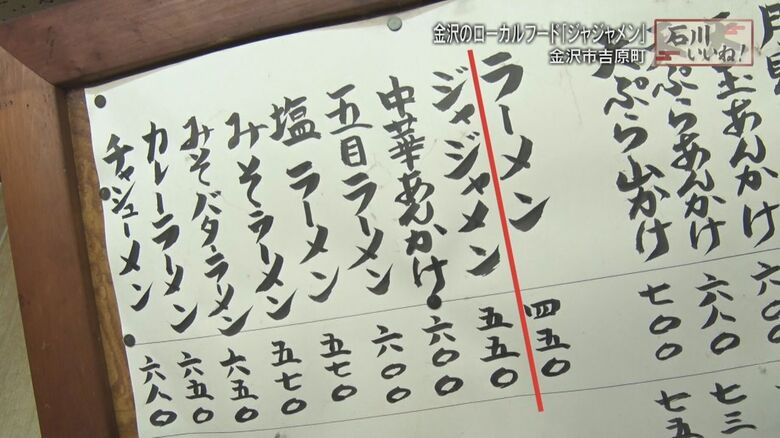 金沢のローカルフード「ジャジャメン」
金沢市吉原町
石川
いいね!
玉あんかけ
ぷらあんかけ 六八〇
ぷら山かけ 七〇〇
ラーメン 四五〇
ジャジャメン 五五〇
中華あんかけ 六〇〇
五目ラーメン 六〇〇
塩ラーメン 五七〇
みそラーメン 五七〇
みそバターラーメン 六五〇
カレーラーメン 六五〇
チャシューメン 六八〇
七三
七五